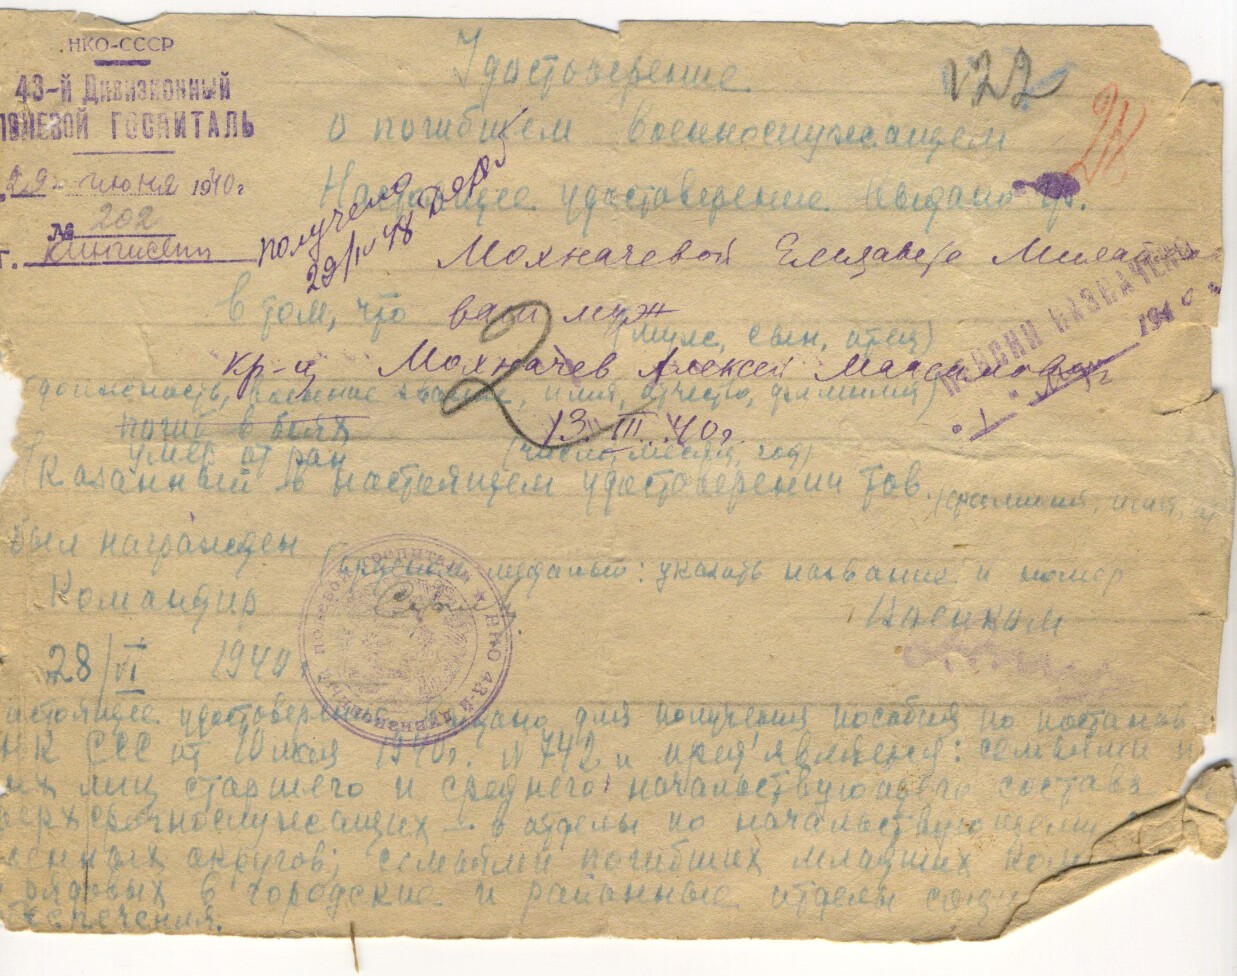 НКО-СССР
43-й Дивизионный
ПОЛЕВОЙ ГОСПИТАЛЬ
29 июня 1940 г
№ 202
г. Кингисепп
Удостоверение
122
о погибшем военнослужащем
Настоящее удостоверение выдано гр.
получено
29/IV 48
Мохначевой Елизавете
в том, что ваш муж
(муж, сын, отец)
ПЕНСИИ НАЗНАЧЕНО
1940
кр-ц Мохначев Алексей Максимович
(должность, военное звание, имя, отчество, фамилия)
погиб в боях 13 III 40 г.
умер от ран (число, месяц, год)
казанный в настоящем удостоверении тов. (фамилия, имя,
2
был награжден
(орденом медалью: указать название и номер
Командир Военком
полевой госпиталь ★ НКО 43-й дивизионный
28/VI 1940
стоящее удостоверение выдано для получения пособия по постанов
НК ССС от 10 июля 1940 г. № 742 и пред'является: семьями п
их лиц старшего и среднего начальствующего состава
верхсрочнослужащих – в отделы по начальствующему
енных округов; семьями погибших младших ком
рядовых в городские и районные отделы соци
беспечения.